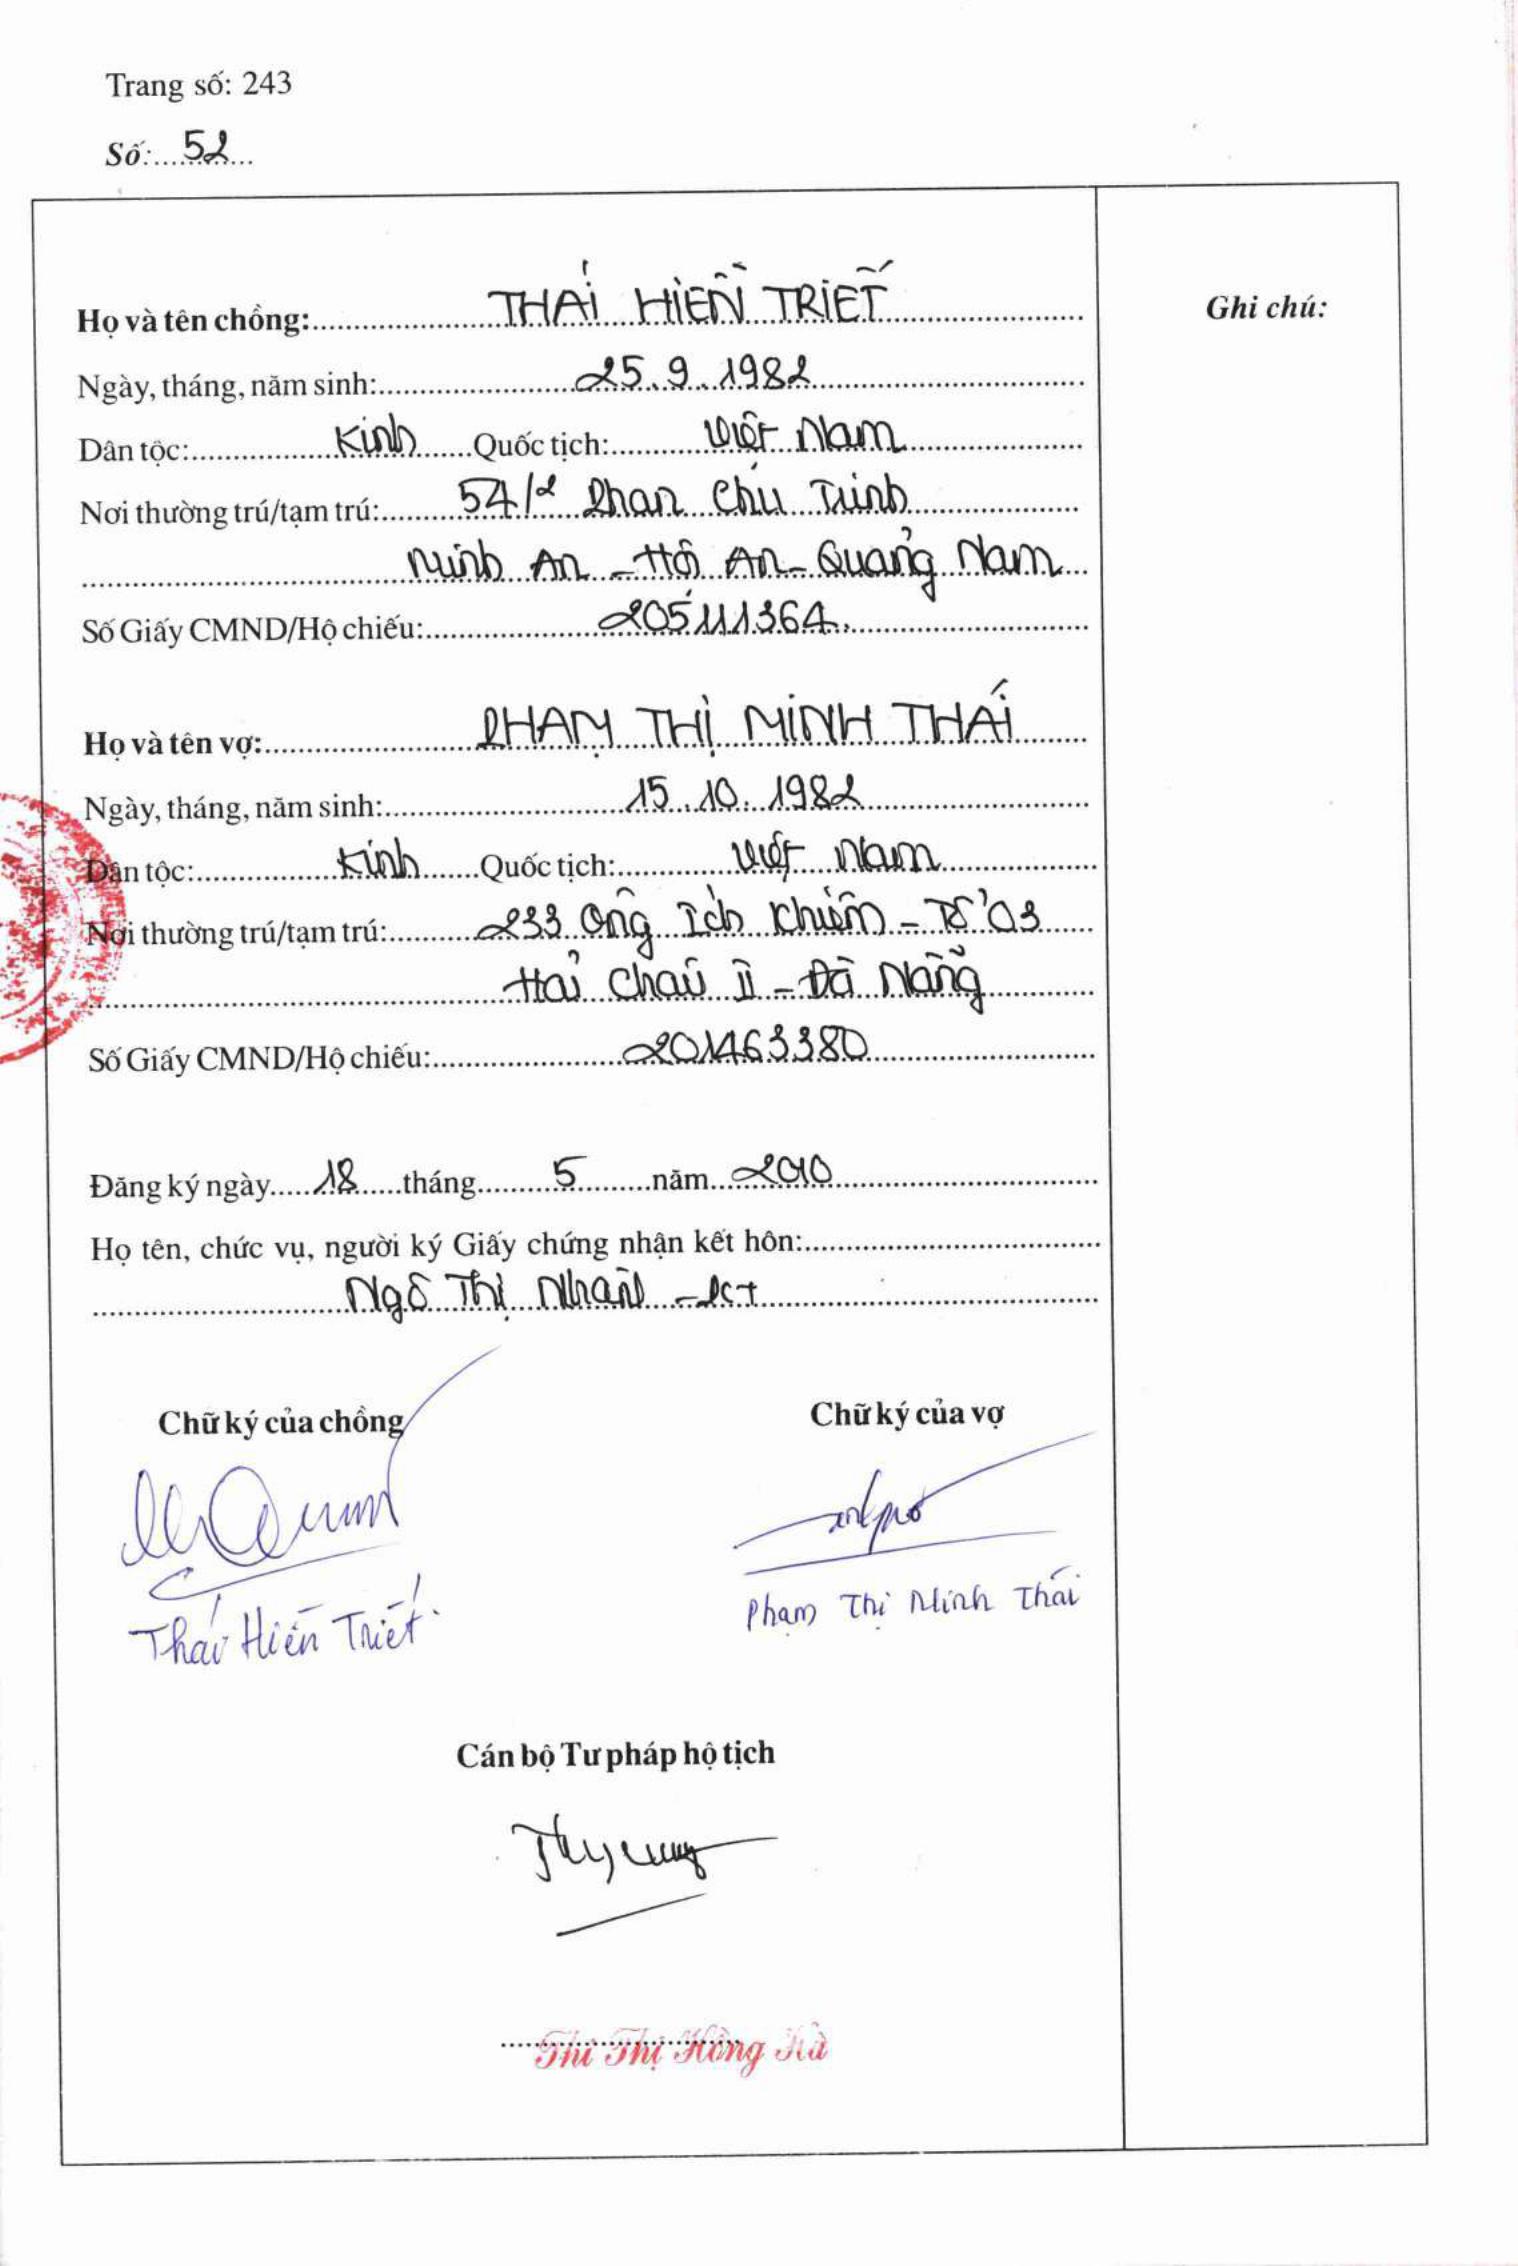 Trang số: 243
Số: 52
Họ và tên chồng: THÁI HIỀN TRIẾT
Ghi chú:
Ngày, tháng, năm sinh: 25.9.1982
Dân tộc: Kinh Quốc tịch: Việt Nam
Nơi thường trú/tạm trú: 54/2 Phan Chu Trinh
Minh An - Hội An - Quảng Nam
Số Giấy CMND/Hộ chiếu: 205111364.
Họ và tên vợ: PHẠM THỊ MINH THÁI
Ngày, tháng, năm sinh: 15.10.1982
Dân tộc: Kinh Quốc tịch: Việt Nam
Nơi thường trú/tạm trú: 233 Ông Ích Khiêm - Tổ 03
Hải Châu II - Đà Nẵng
Số Giấy CMND/Hộ chiếu: 201463380
Đăng ký ngày 18 tháng 5 năm 2010
Họ tên, chức vụ, người ký Giấy chứng nhận kết hôn:
Ngô Thị Nhân - PCT
Chữ ký của chồng Chữ ký của vợ
Thái Hiền Triết. Phạm Thị Minh Thái
Cán bộ Tư pháp hộ tịch
Thi Thị Hồng Hà